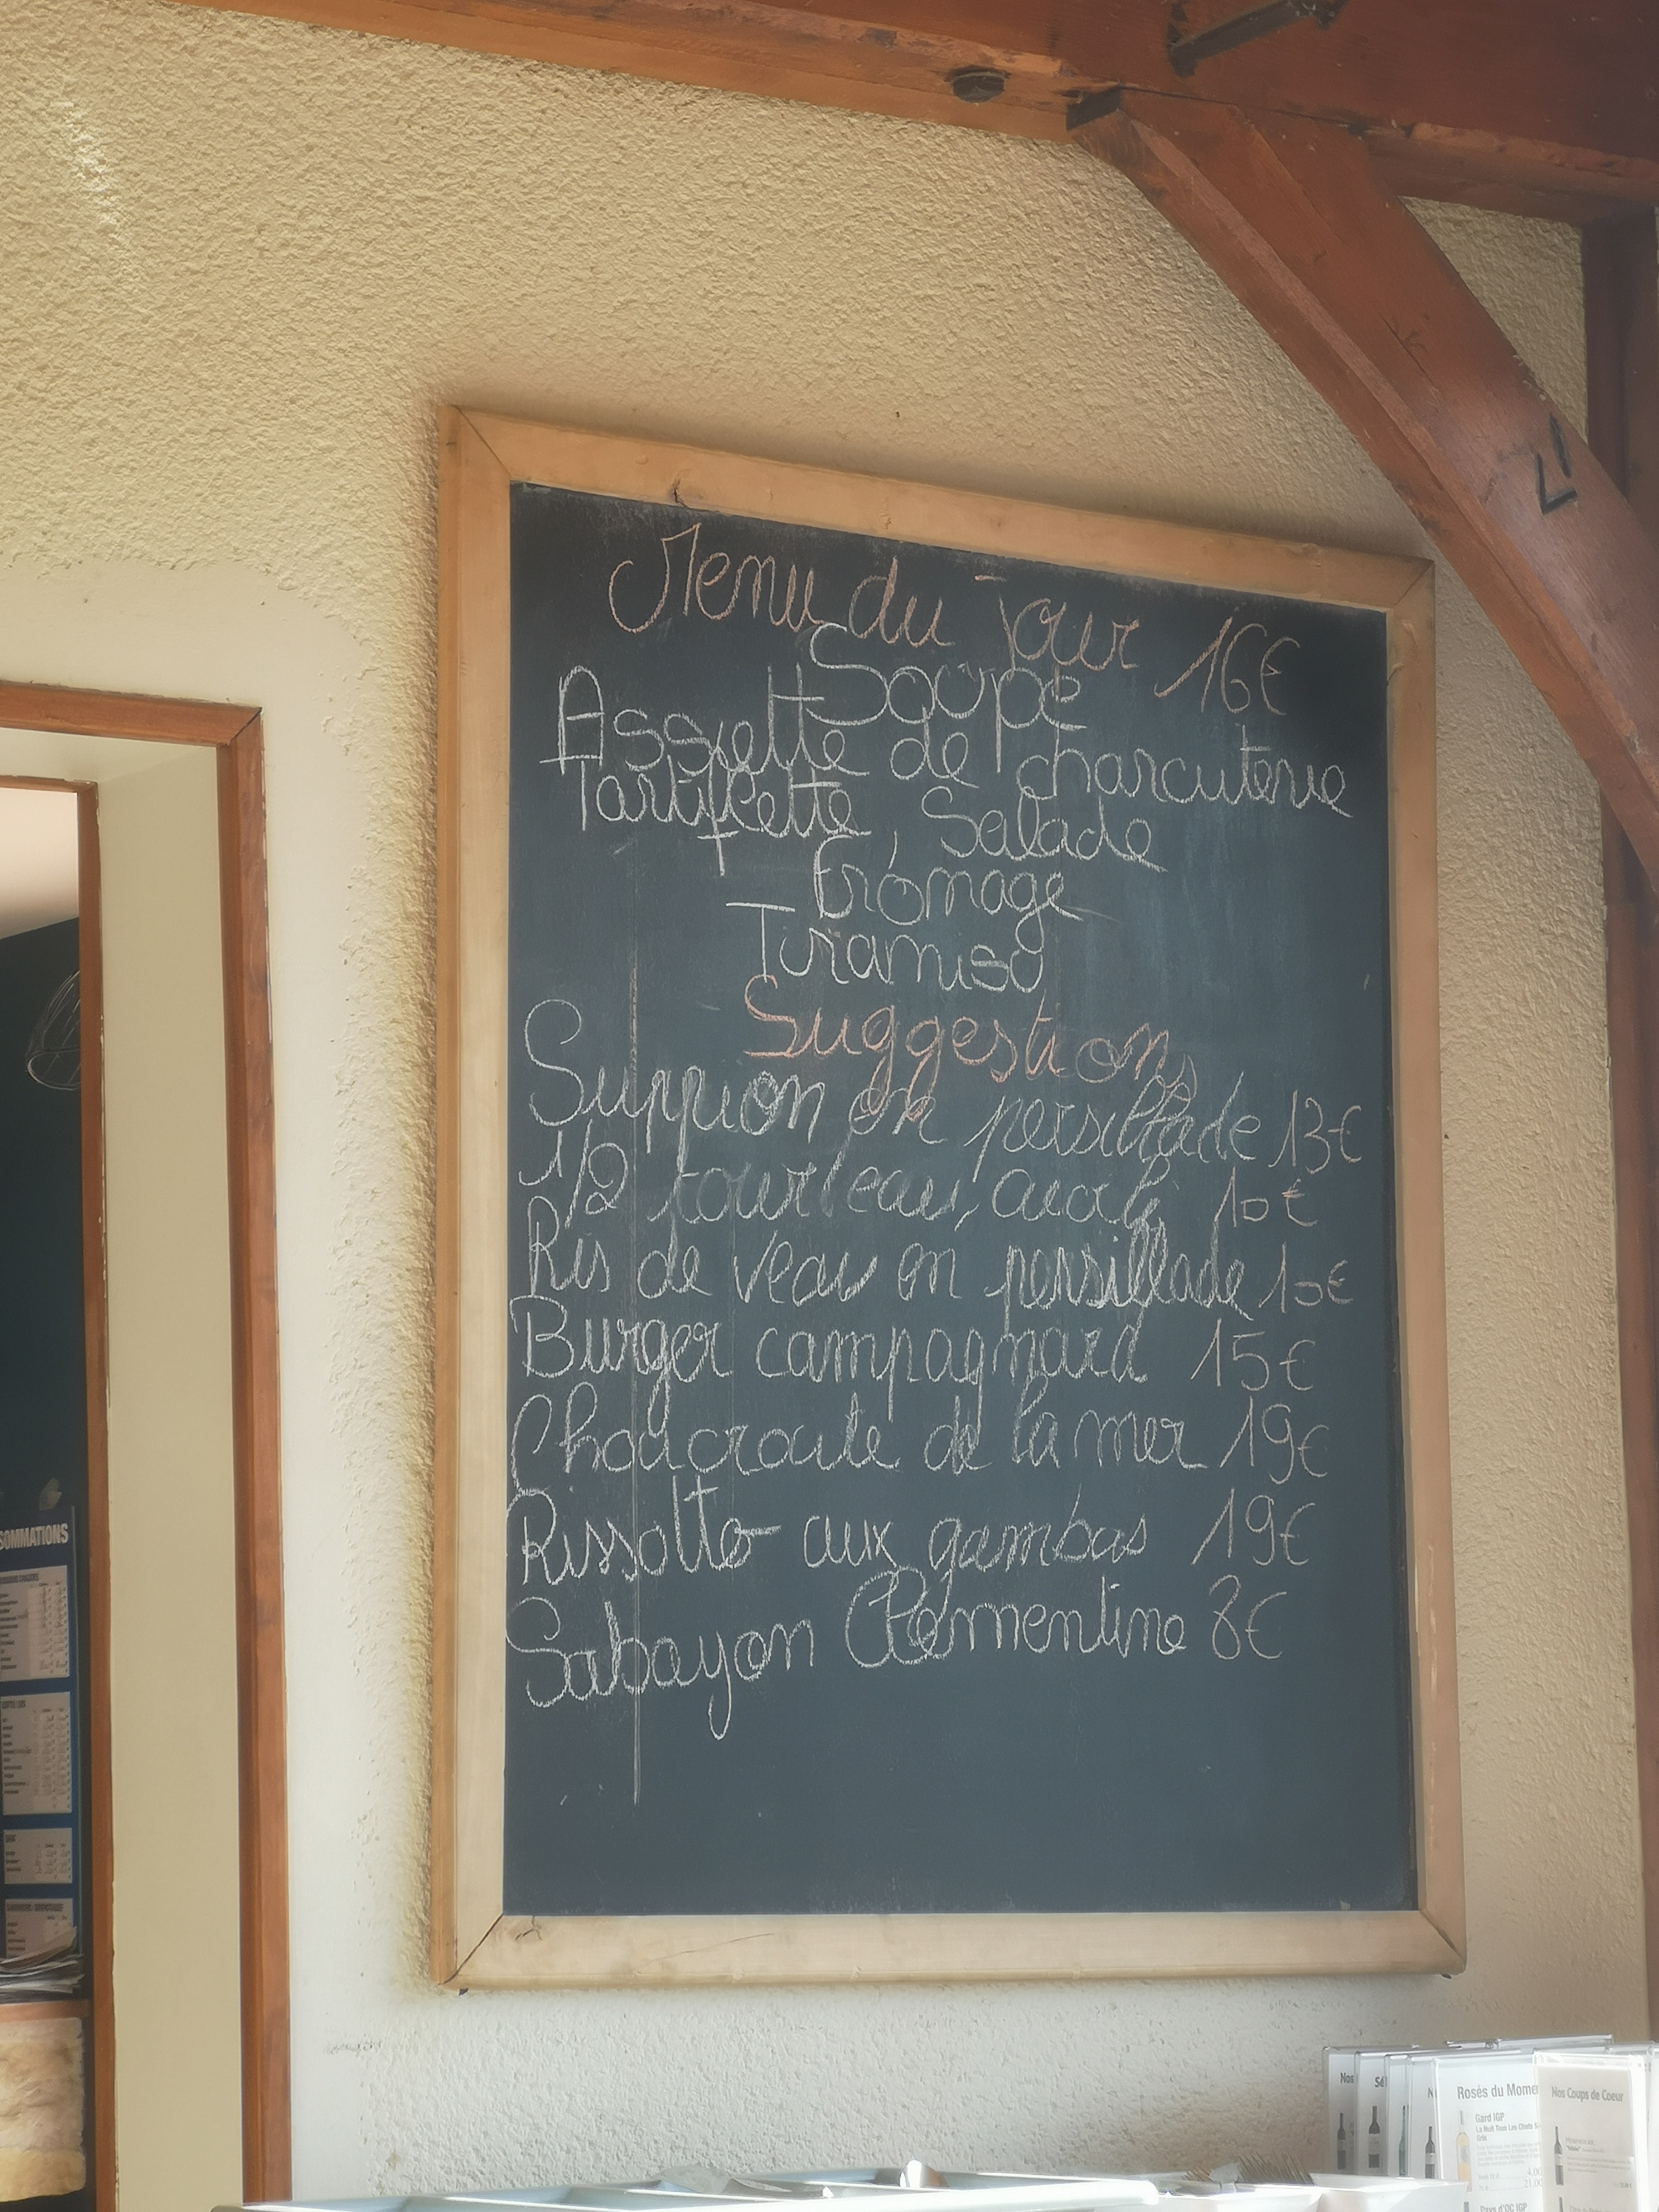 Menu du jour 16€
Soupe
Assiette de charcuterie
Tartiflette, Salade
Fromage
Tiramisu
Suggestions
Suppion en persillade 13€
1/2 tourteau, aïoli 10€
Ris de veau en persillade 10€
Burger campagnard 15€
Choucroute de la mer 19€
Rissotto aux gambas 19€
Sabayon Clémentine 8€
SOMMATIONS
Nos
Rosés du Mome
Gard IGP
La Nuit Tous Les Chats S
Gris
4.00
21.00
Pays d'OC IGP
Nos Coups de Coeur